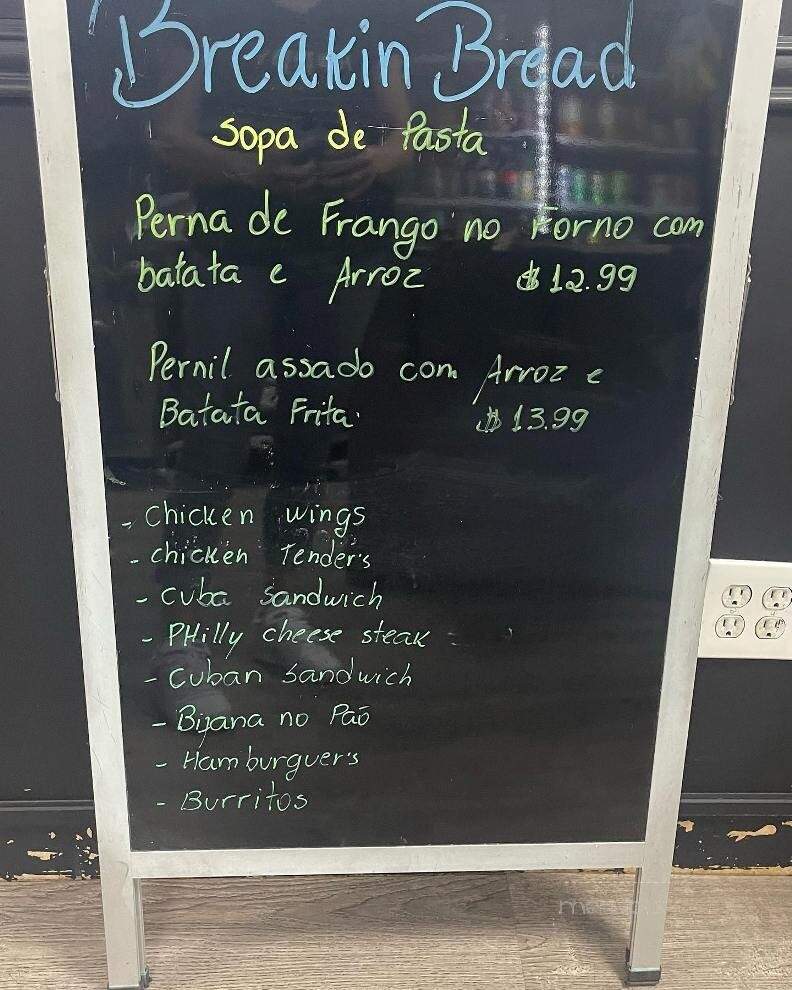 Breakin Bread
Sopa de Pasta
Perna de Frango no Forno com
batata e Arroz $12.99
Pernil assado com Arroz e
Batata Frita. $13.99
- Chicken wings
- chicken Tender's
- Cuba Sandwich
- PHilly cheese steak
- Cuban Sandwich
- Bijana no Pão
- Hamburguer's
- Burritos